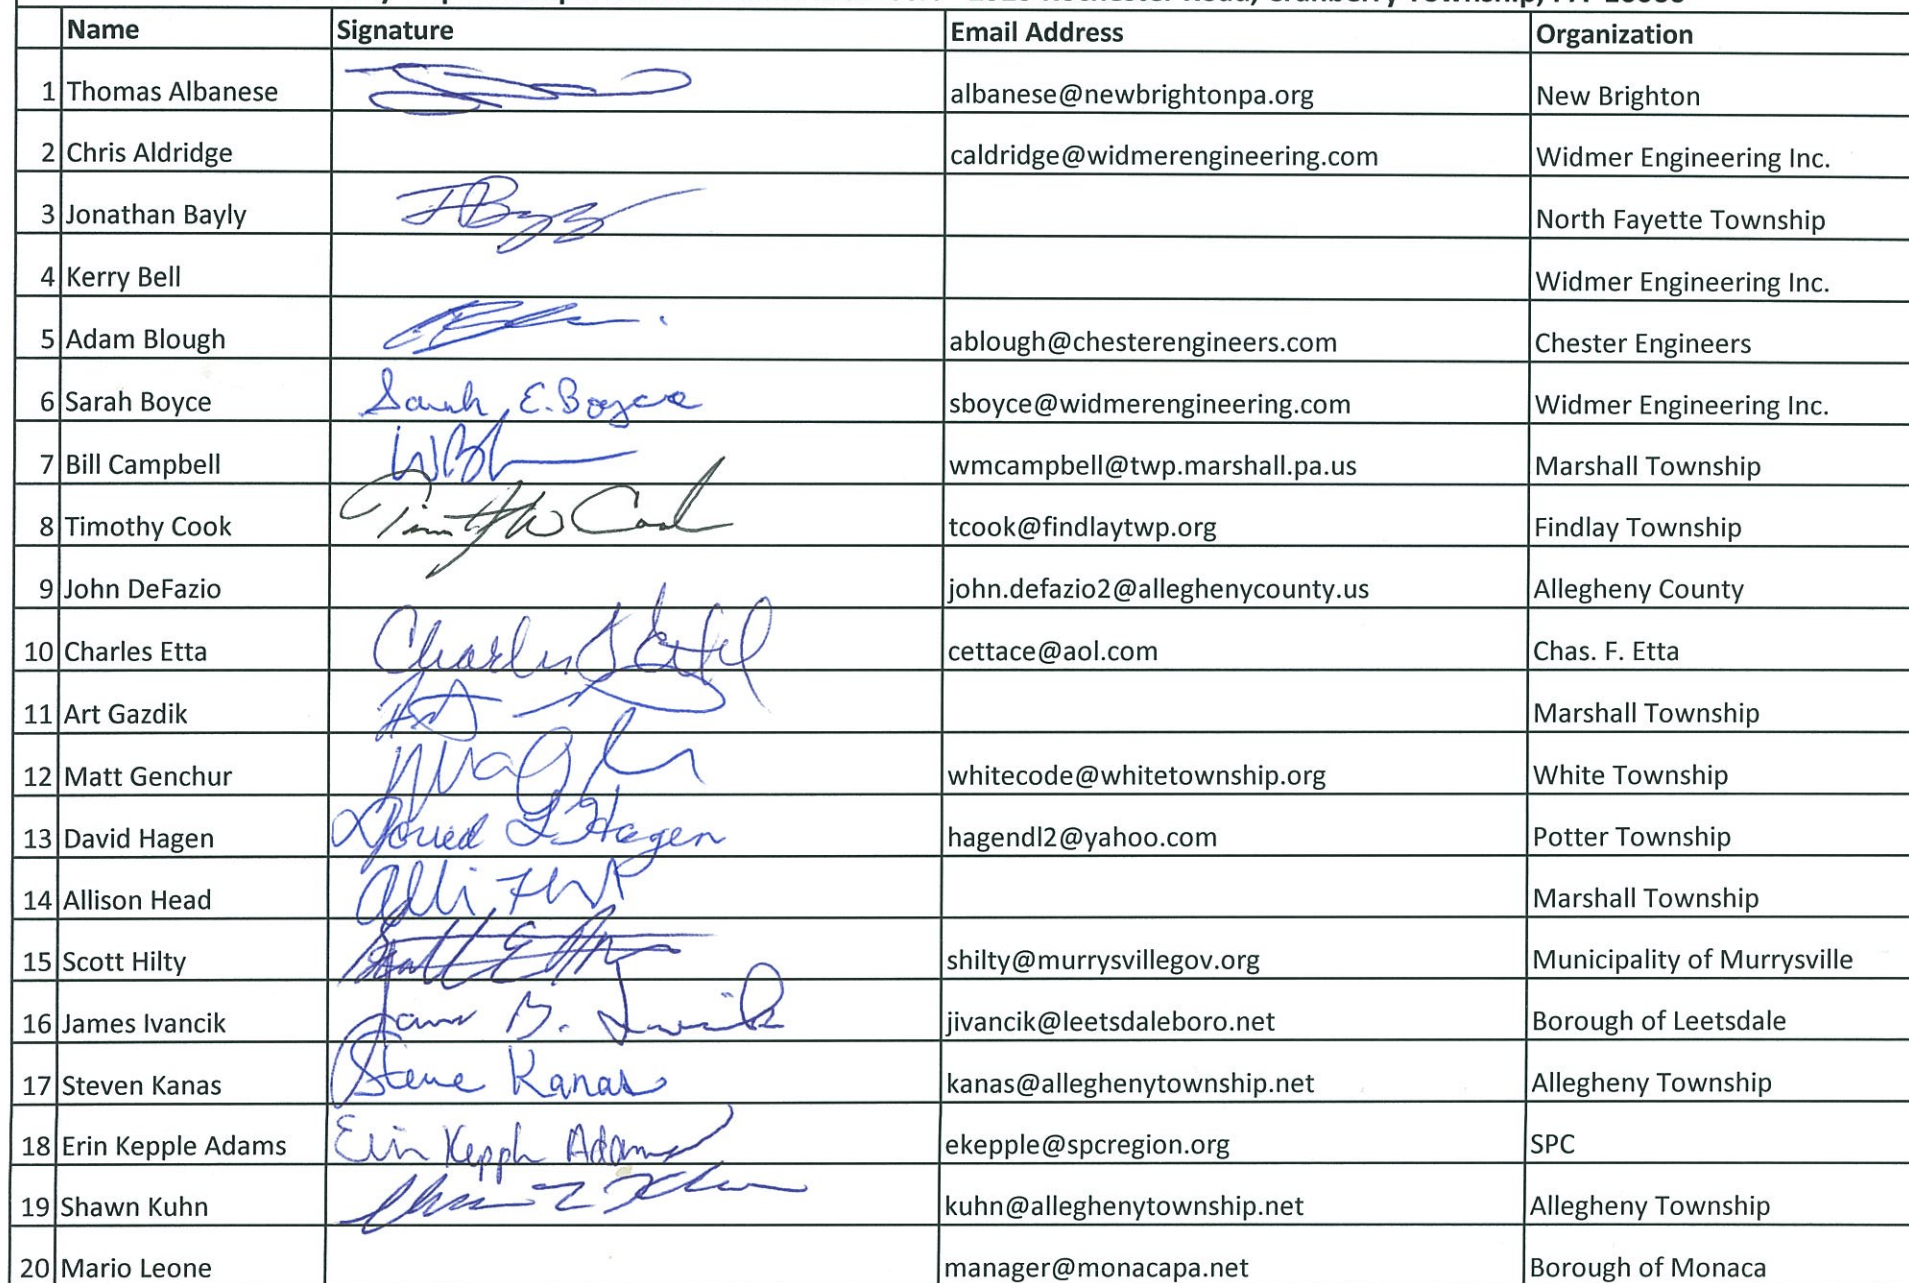 Name Signature Email Address Organization
1 Thomas Albanese albanese@newbrightonpa.org New Brighton
2 Chris Aldridge caldridge@widmerengineering.com Widmer Engineering Inc.
3 Jonathan Bayly North Fayette Township
4 Kerry Bell Widmer Engineering Inc.
5 Adam Blough ablough@chesterengineers.com Chester Engineers
6 Sarah Boyce Sarah E. Boyce sboyce@widmerengineering.com Widmer Engineering Inc.
7 Bill Campbell wmcampbell@twp.marshall.pa.us Marshall Township
8 Timothy Cook Timothy W Cook tcook@findlaytwp.org Findlay Township
9 John DeFazio john.defazio2@alleghenycounty.us Allegheny County
10 Charles Etta Charles cettace@aol.com Chas. F. Etta
11 Art Gazdik Marshall Township
12 Matt Genchur whitecode@whitetownship.org White Township
13 David Hagen David L Hagen hagendl2@yahoo.com Potter Township
14 Allison Head Marshall Township
15 Scott Hilty shilty@murrysvillegov.org Municipality of Murrysville
16 James Ivancik James B. Ivancik jivancik@leetsdaleboro.net Borough of Leetsdale
17 Steven Kanas Steve Kanas kanas@alleghenytownship.net Allegheny Township
18 Erin Kepple Adams Erin Kepple Adams ekepple@spcregion.org SPC
19 Shawn Kuhn kuhn@alleghenytownship.net Allegheny Township
20 Mario Leone manager@monacapa.net Borough of Monaca